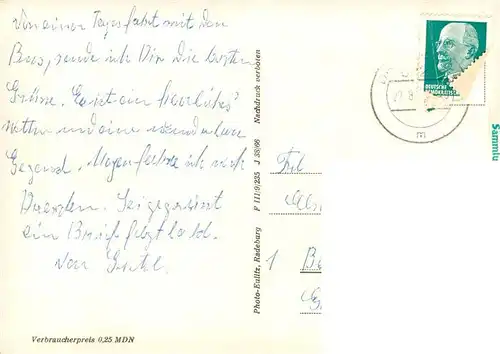 Von einer Tagesfahrt mit dem
Bus, sende ich Dir die besten
Grüsse. Es ist ein herrliches
Wetter und eine wunderbare
Gegend. Morgen fahre ich nach
Dresden. Sei gegrüsst
ein Brief folgt bald.
Von
Verbraucherpreis 0,25 MDN
Photo-Eulitz, Radeburg F III/9/235 J 38/66 Nachdruck verboten
Frl
1
DEUTSCHE
Sammlu